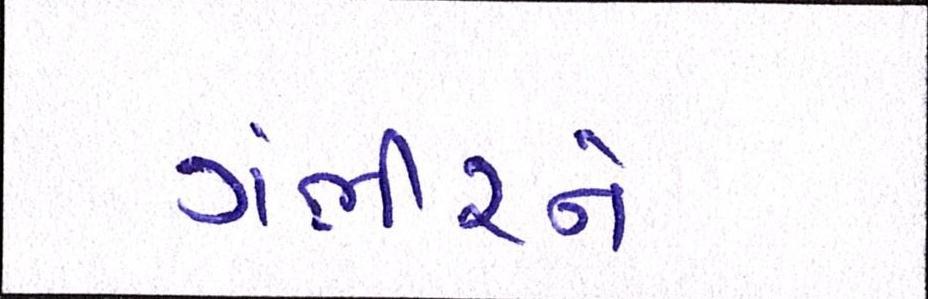 ગંભીરને